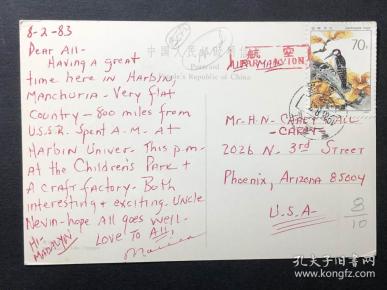 8-2-83
Dear All-
Having a great
time here in Harbin,
Manchuria - Very flat
Country - 800 miles from
U.S.S.R. Spent A.M. At
Harbin Univer. This p.m.
At the Children's Park +
A craft factory. Both
interesting + exciting. Uncle
Nevin-hope All goes well-
Love To All,
Hi-
MADALYN
中国人民邮政明信片
Postcard
People's Republic of China
航空
PAR AVION
70分
Mr. H.N. CAREY + All
CAREY
2026 N. 3rd Street
Phoenix, Arizona 85004
U.S.A.
8/10
孔夫子旧书网